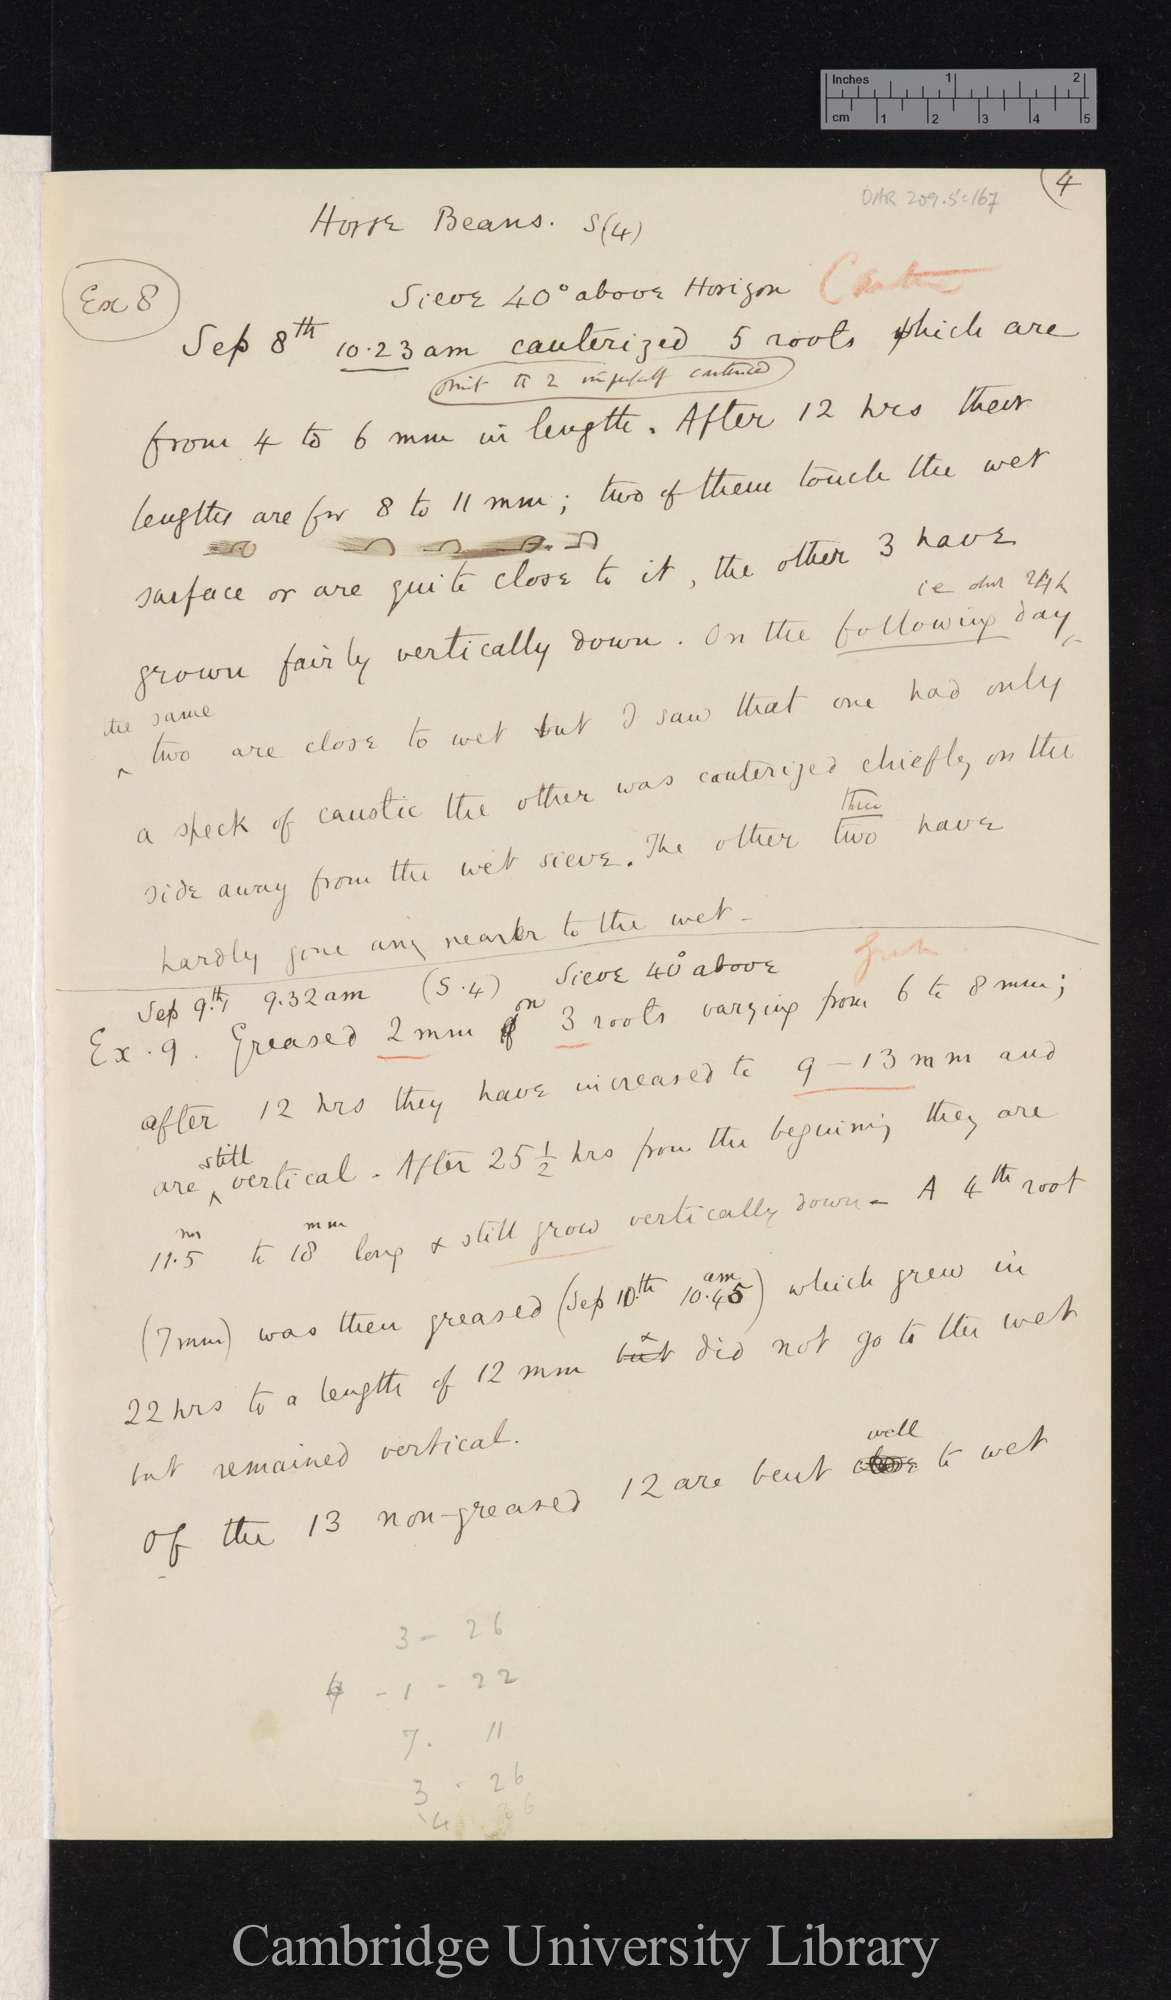 Inches 1 2
cm 1 2 3 4 5
(4
DAR 209.5:167
Horse Beans. S(4)
Ex 8
Sieve 40° above Horizon
Sep 8th 10.23 am cauterized 5 roots which are
omit the 2 imperfectly cauterized
from 4 to 6 mm in length. After 12 hrs their
lengths are fr 8 to 11 mm; two of them touch the wet
surface or are quite close to it, the other 3 have
ie after 24 h
grown fairly vertically down. On the following day
the same
two are close to wet but I saw that one had only
a speck of caustic the other was cauterized chiefly on the
three
side away from the wet sieve. The other two have
hardly gone any nearer to the wet –
Sep 9th 9.32 am (S.4) Sieve 40° above
on
Ex. 9. Greased 2 mm of 3 roots varying from 6 to 8 mm;
after 12 hrs they have increased to 9 – 13 mm and
still
are vertical. After 25 1/2 hrs from the beginning they are
m mm
11.5 to 18 long & still grow vertically down – A 4th root
am
(7 mm) was then greased (Sep 10th 10.45) which grew in
&
22 hrs to a length of 12 mm but did not go to the wet
but remained vertical.
well
Of the 13 non-greased 12 are bent close to wet
3 – 26
4 – 1 – 22
7. 11
3 . 26
Cambridge University Library